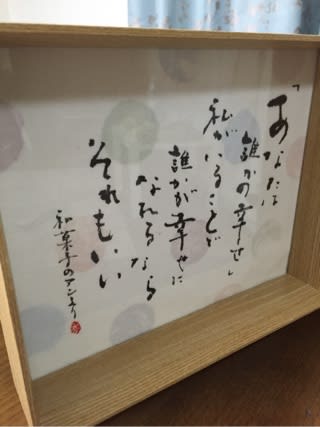 「あなたは
誰かの幸せ」
私がいることで
誰かが幸せに
なれるなら
それもいい
和菓子のアン より